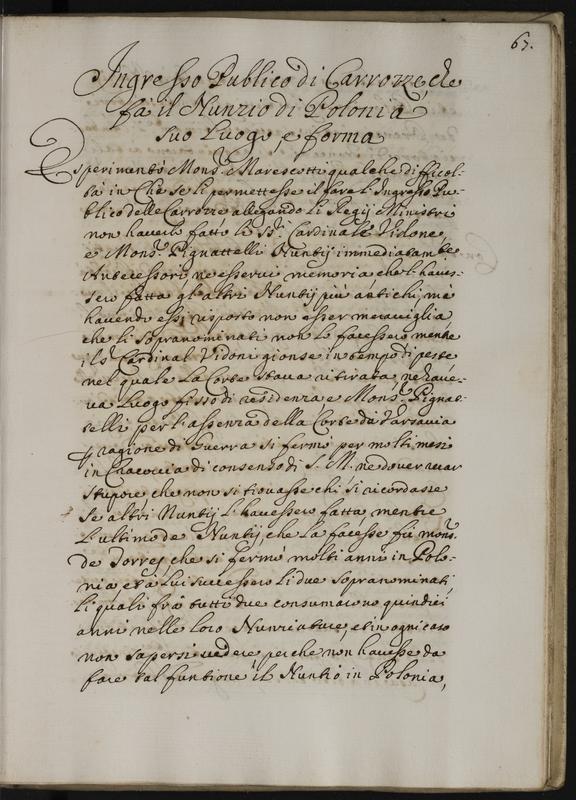 67.
Ingresso Publico di Carrozze, che
fà il Nunzio di Polonia
suo Luogo, e forma
Esperimentò Mons.r Marescotti qualche difficol-
tà in che se li permettesse il fare l'Ingresso Pu-
blico delle Carrozze allegando li Regij Ministri
non haverlo fatto li SS.ri Cardinale Vidone,
e Mons.r Pignattelli Nuntij immediatam.te
Antecessori, ne esservi memoria che l'haves-
sero fatta gl'altri Nuntij più antichi, mà
havendo essi risposto non esser meraviglia
che li sopranominati non lo facessero mentre
il S.r Cardinal Vidoni gionse in tempo di peste
nel quale la Corte stava ritirata, ne have-
va luogo fisso di residenza e Mons.r Pignat-
telli per l'assenza della Corte da Varsavia
per ragione di Guerra si fermò per molti mesi
in Cracovia di consenso di S. M. ne dover recar
stupore che non si trovasse chi si ricordasse
se altri Nuntij l'havessero fatta, mentre
l'ultimo de Nuntij che la facesse fù Mons.r
de Torres che si fermò molti anni in Polo-
nia, e à lui successero li due sopranominati,
li quali frà tutti due consumarono quindici
anni nelle loro Nunziature, et in ogni caso
non sapersi vedere perche non havesse da
fare tal funtione il Nuntio in Polonia,